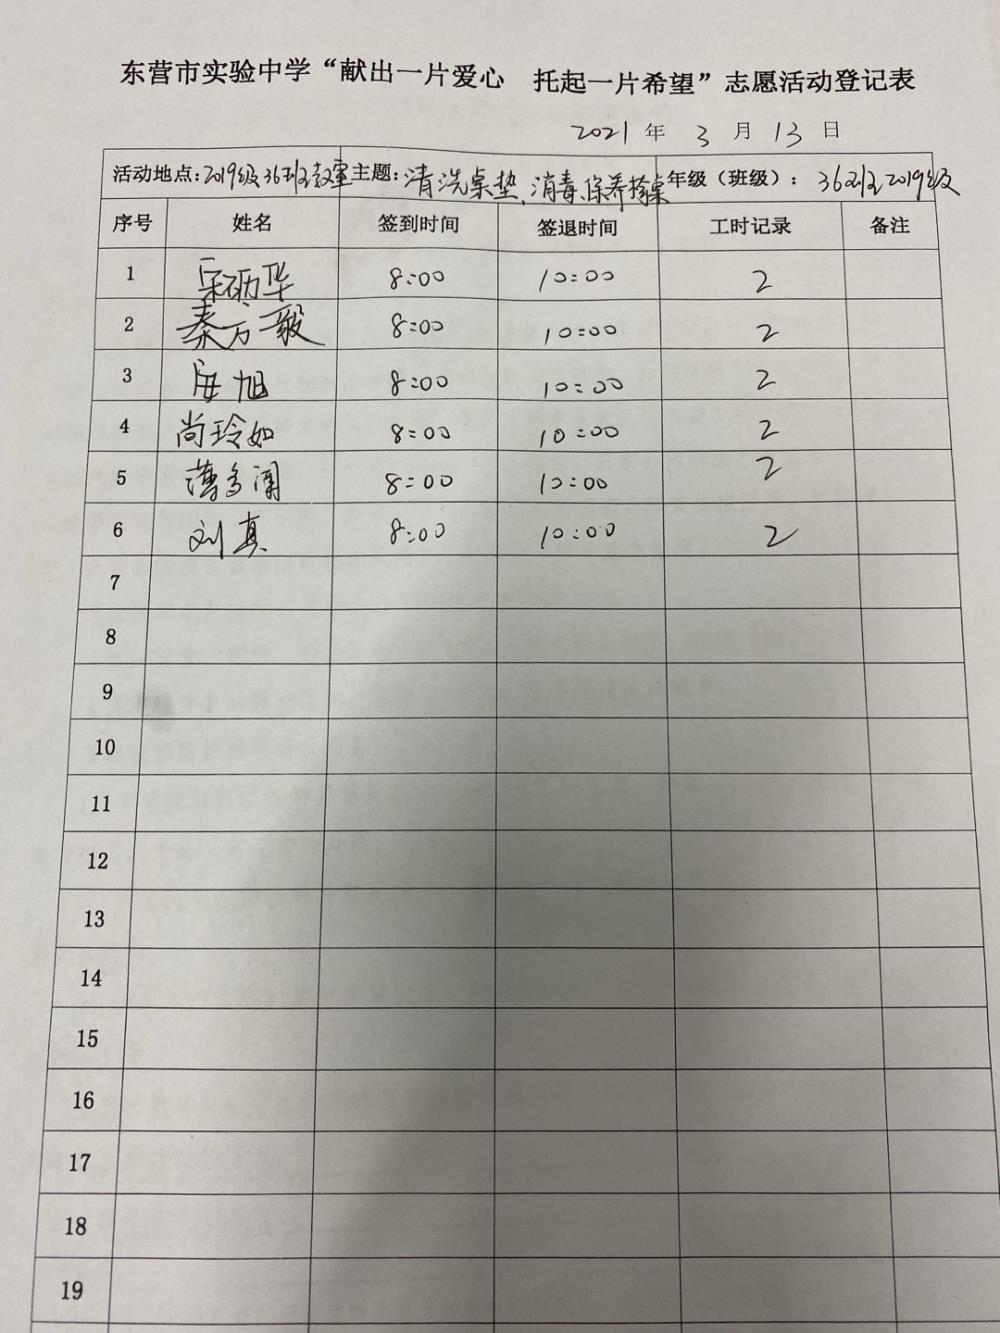 东营市实验中学“献出一片爱心 托起一片希望”志愿活动登记表
2021 年 3 月 13 日
活动地点:2019级36班教室 主题:清洗桌垫、消毒、保养掎桌 年级（班级）: 36班2019级
序号 姓名 签到时间 签退时间 工时记录 备注
1 宋砺华 8:00 10:00 2
2 秦方毅 8:00 10:00 2
3 旭 8:00 10:00 2
4 尚玲如 8:00 10:00 2
5 薄 8:00 10:00 2
6 刘真 8:00 10:00 2
7
8
9
10
11
12
13
14
15
16
17
18
19